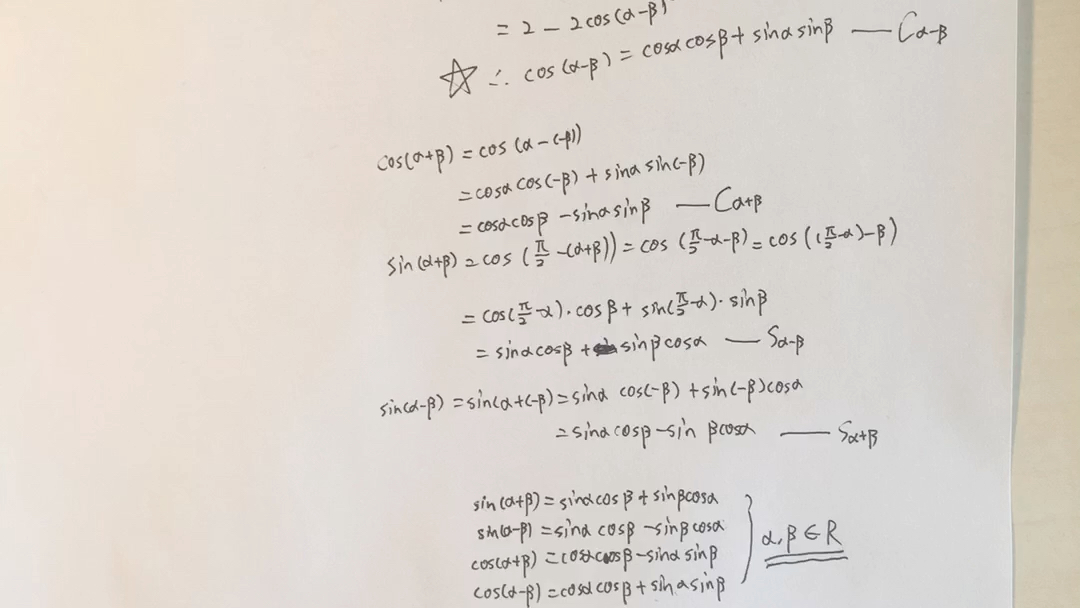 = 2 - 2cos(α-β)
☆ ∴ cos(α-β) = cosαcosβ + sinαsinβ — Cα-β
cos(α+β) = cos(α-(-β))
= cosαcos(-β) + sinαsin(-β)
= cosαcosβ - sinαsinβ — Cα+β
sin(α+β) = cos(π/2-(α+β)) = cos(π/2-α-β) = cos((π/2-α)-β)
= cos(π/2-α)·cosβ + sin(π/2-α)·sinβ
= sinαcosβ + sinβcosα — Sα-β
sin(α-β) = sin(α+(-β) = sinα cos(-β) + sin(-β)cosα
= sinαcosβ - sinβcosα — Sα+β
sin(α+β) = sinαcosβ + sinβcosα
sin(α-β) = sinαcosβ - sinβcosα
cos(α+β) = cosαcosβ - sinαsinβ
cos(α-β) = cosαcosβ + sinαsinβ
} α,β∈R